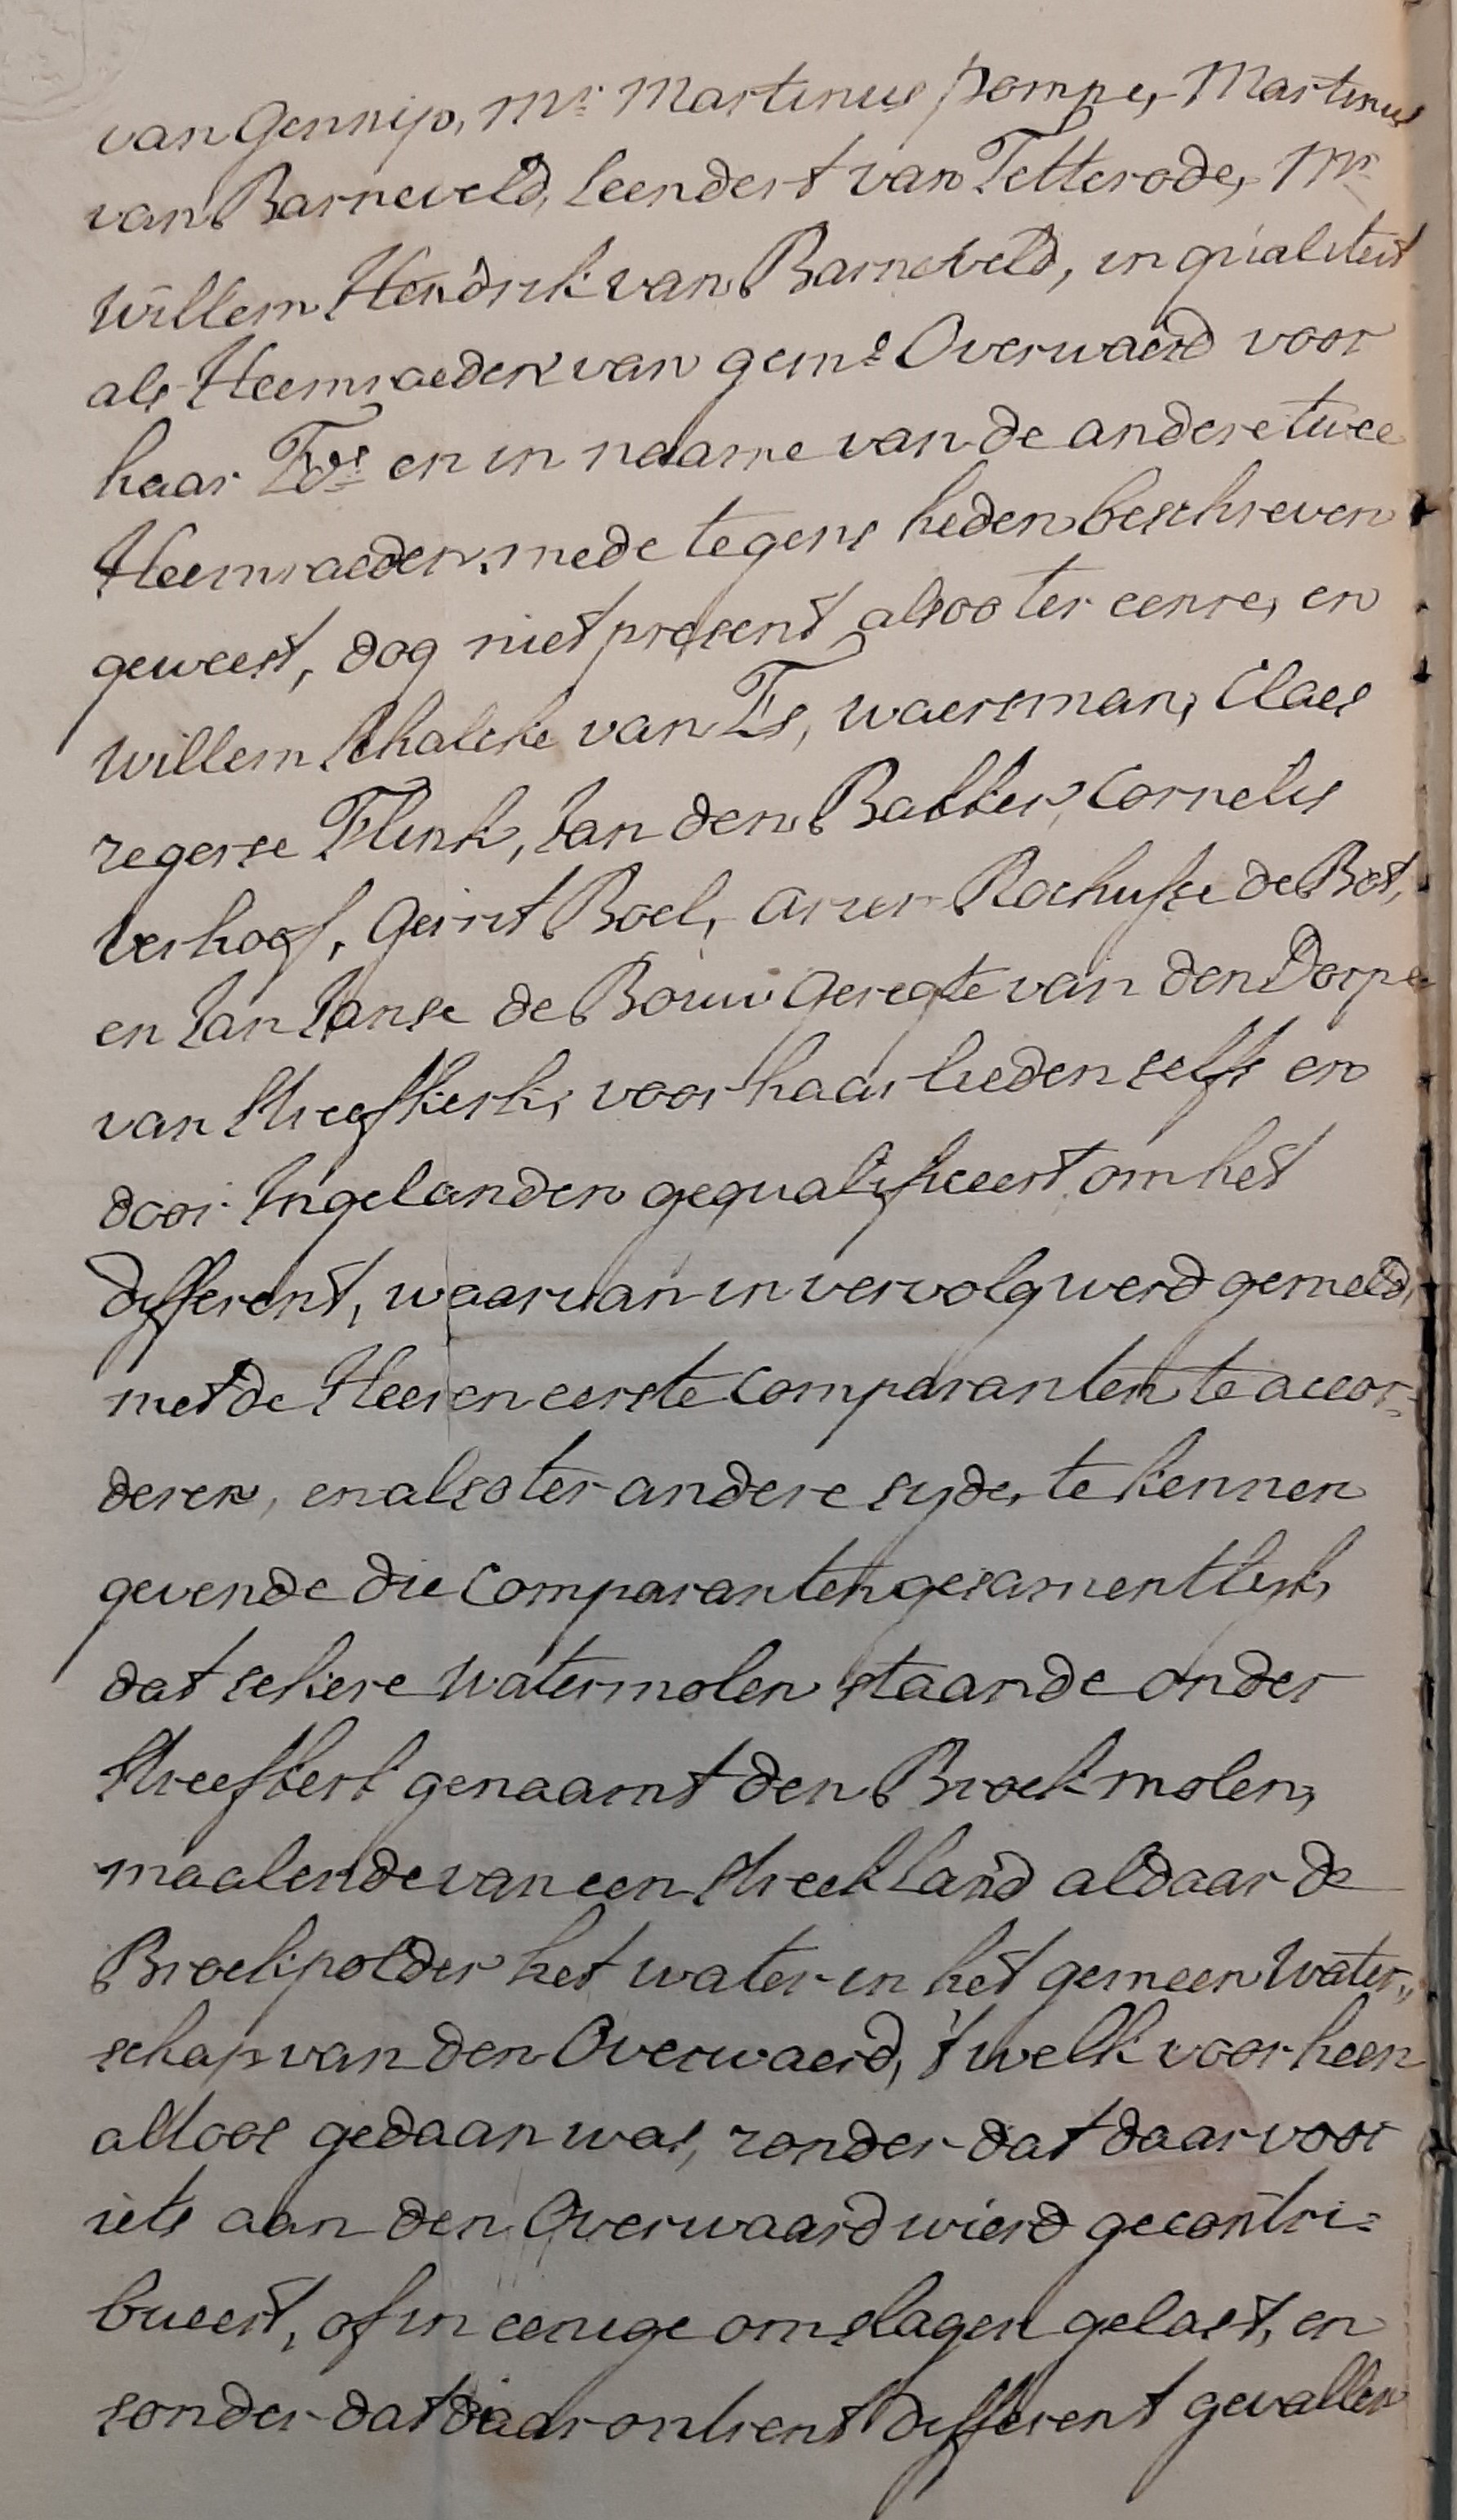 van Gennip, Mr Martinus Pompe, Martinus
van Barneveld, Leendert van Tetterode, Mr
Willem Hendrik van Barneveld, in qualiteit
als Heemraeden van geme Overwaerd voor
haar Eds en in naame van de andere twee
Heemraeden mede tegens heden beschreven
geweest, dog niet present, alsoo ter eenre, en
Willem Schalcke van Es, waersman, Claes
zegerse Flink, Jan den Bakker, Cornelis
Verhoef, Gerrit Boel, Arien Rochusse de Bot,
en Jan Janse de Bouw Geregte van den Dorpe
van Streefkerk, voor haar lieden selfs en
door Ingelanden gequalificeert om het
different, waarvan in vervolg werd gemeld,
met de Heeren eerste Comparanten te accor=
deren, en also ter andere syde, te kennen
gevende die Comparanten gesamentlijk,
dat sekere Watermolen staande onder
Streefkerk genaamt den Broekmolen,
maalende van een Streek Land aldaar de
Broekpolder het water in het gemeen Water„
schap van den Overwaerd, 't welk voorheen
altoos gedaan was, zonder dat daar voor
iets aan den Overwaard wierd gecontri=
bueert, of in eenige omslagen gelast, en
sonder dat daar ontrent different gevallen